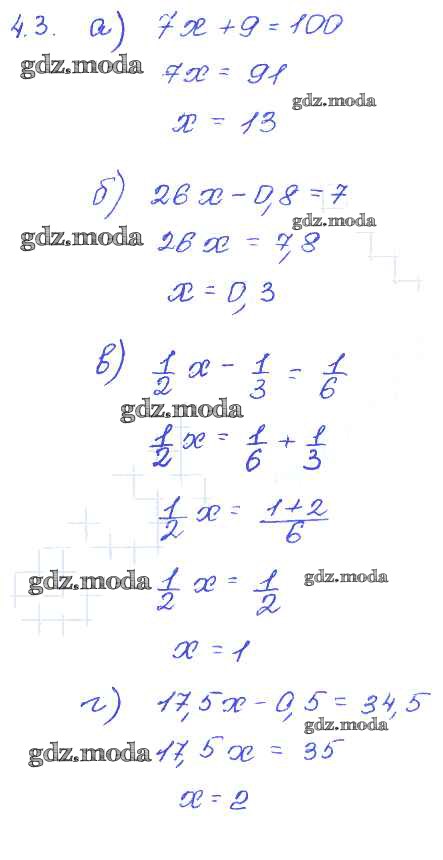 4.3. а) 7x + 9 = 100
gdz.moda 7x = 91
gdz.moda
x = 13
б) 26x - 0,8 = 7
gdz.moda
gdz.moda 26x = 7,8
x = 0,3
в) 1/2 x - 1/3 = 1/6
gdz.moda
1/2 x = 1/6 + 1/3
1/2 x = (1+2)/6
gdz.moda 1/2 x = 1/2 gdz.moda
x = 1
г) 17,5x - 0,5 = 34,5
gdz.moda
gdz.moda 17,5x = 35
x = 2